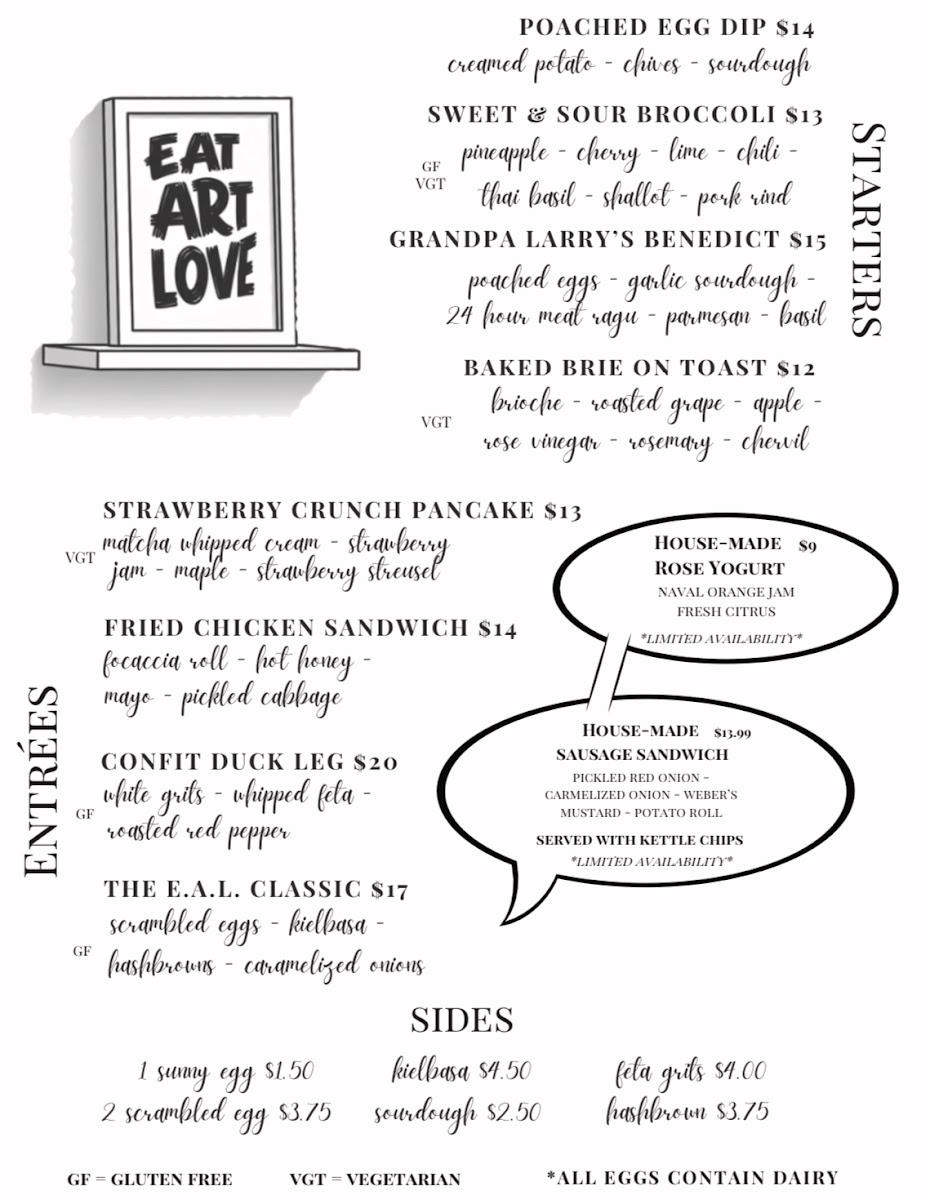 EAT
ART
LOVE
STARTERS
POACHED EGG DIP $14
creamed potato - chives - sourdough
SWEET & SOUR BROCCOLI $13
GF
VGT
pineapple - cherry - lime - chili -
thai basil - shallot - pork rind
GRANDPA LARRY'S BENEDICT $15
poached eggs - garlic sourdough -
24 hour meat ragu - parmesan - basil
BAKED BRIE ON TOAST $12
VGT
brioche - roasted grape - apple -
rose vinegar - rosemary - chervil
ENTRÉES
STRAWBERRY CRUNCH PANCAKE $13
VGT
matcha whipped cream - strawberry
jam - maple - strawberry streusel
FRIED CHICKEN SANDWICH $14
focaccia roll - hot honey -
mayo - pickled cabbage
CONFIT DUCK LEG $20
GF
white grits - whipped feta -
roasted red pepper
THE E.A.L. CLASSIC $17
GF
scrambled eggs - kielbasa -
hashbrowns - caramelized onions
HOUSE-MADE $9
ROSE YOGURT
NAVAL ORANGE JAM
FRESH CITRUS
*LIMITED AVAILABILITY*
HOUSE-MADE $13.99
SAUSAGE SANDWICH
PICKLED RED ONION -
CARMELIZED ONION - WEBER'S
MUSTARD - POTATO ROLL
SERVED WITH KETTLE CHIPS
*LIMITED AVAILABILITY*
SIDES
1 sunny egg $1.50
kielbasa $4.50
feta grits $4.00
2 scrambled egg $3.75
sourdough $2.50
hashbrown $3.75
GF = GLUTEN FREE
VGT = VEGETARIAN
*ALL EGGS CONTAIN DAIRY